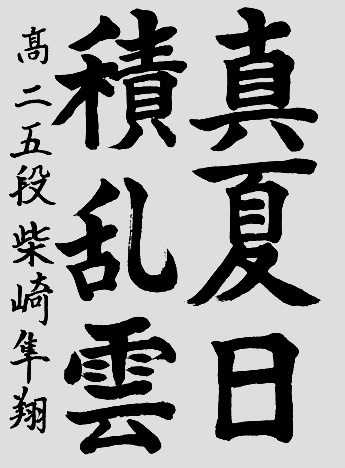 真夏日
積乱雲
髙二五段柴崎隼翔